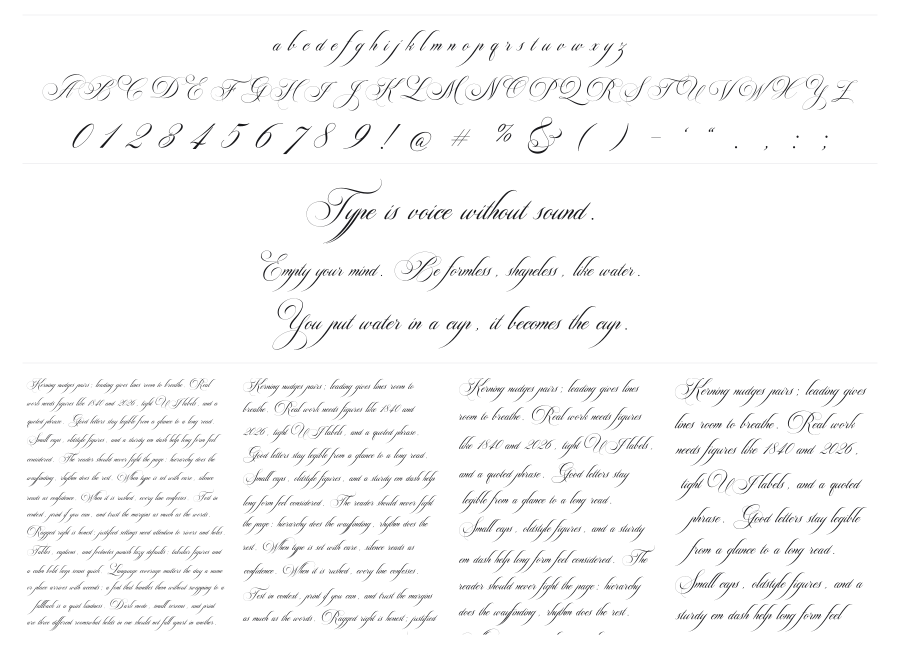 a b c d e f g h i j k l m n o p q r s t u v w x y z
A B C D E F G H I J K L M N O P Q R S T U V W X Y Z
0 1 2 3 4 5 6 7 8 9 ! @ # % & ( ) – ‘ “ . , : ;
Type is voice without sound.
Empty your mind. Be formless, shapeless, like water.
You put water in a cup, it becomes the cup.
Kerning nudges pairs; leading gives lines room to breathe. Real
work needs figures like 1840 and 2026, tight UI labels, and a
quoted phrase. Good letters stay legible from a glance to a long read.
Small caps, oldstyle figures, and a sturdy em dash help long form feel
considered. The reader should never fight the page: hierarchy does the
wayfinding, rhythm does the rest. When type is set with care, silence
reads as confidence. When it is rushed, every line confesses. Test in
context, print if you can, and trust the margins as much as the words.
Ragged right is honest; justified settings need attention to rivers and holes.
Tables, captions, and footnotes punish lazy defaults: tabular figures and
a calm bold keep annexes quiet. Language coverage matters the day a name
or place arrives with accents; a font that handles them without swapping to a
fallback is a quiet kindness. Dark mode, small screens, and print
are three different rooms; what holds in one should not fall apart in another.
Kerning nudges pairs; leading gives lines room to
breathe. Real work needs figures like 1840 and
2026, tight UI labels, and a quoted phrase.
Good letters stay legible from a glance to a long read.
Small caps, oldstyle figures, and a sturdy em dash help
long form feel considered. The reader should never fight
the page: hierarchy does the wayfinding, rhythm does the
rest. When type is set with care, silence reads as
confidence. When it is rushed, every line confesses.
Test in context, print if you can, and trust the margins
as much as the words. Ragged right is honest; justified
Kerning nudges pairs; leading gives lines
room to breathe. Real work needs figures
like 1840 and 2026, tight UI labels,
and a quoted phrase. Good letters stay
legible from a glance to a long read.
Small caps, oldstyle figures, and a sturdy
em dash help long form feel considered. The
reader should never fight the page: hierarchy
does the wayfinding, rhythm does the rest.
Kerning nudges pairs; leading gives
lines room to breathe. Real work
needs figures like 1840 and 2026,
tight UI labels, and a quoted
phrase. Good letters stay legible
from a glance to a long read.
Small caps, oldstyle figures, and a
sturdy em dash help long form feel